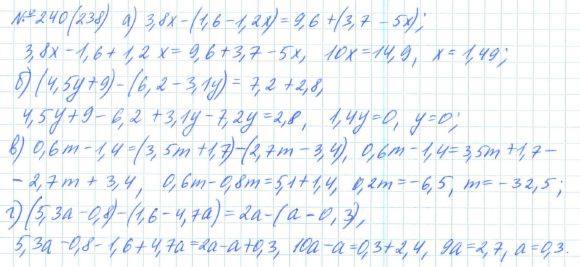 № 240(238) а) 3,8x-(1,6-1,2x)=9,6+(3,7-5x);
3,8x-1,6+1,2x=9,6+3,7-5x, 10x=14,9, x=1,49;
б) (4,5y+9)-(6,2-3,1y)=7,2+2,8,
4,5y+9-6,2+3,1y-7,2y=2,8, 1,4y=0, y=0;
в) 0,6m-1,4=(3,5m+1,7)-(2,7m-3,4), 0,6m-1,4=3,5m+1,7-
-2,7m+3,4, 0,6m-0,8m=5,1+1,4, 0,2m=-6,5, m=-32,5;
г) (5,3a-0,8)-(1,6-4,7a)=2a-(a-0,3),
5,3a-0,8-1,6+4,7a=2a-a+0,3, 10a-a=0,3+2,4, 9a=2,7, a=0,3.